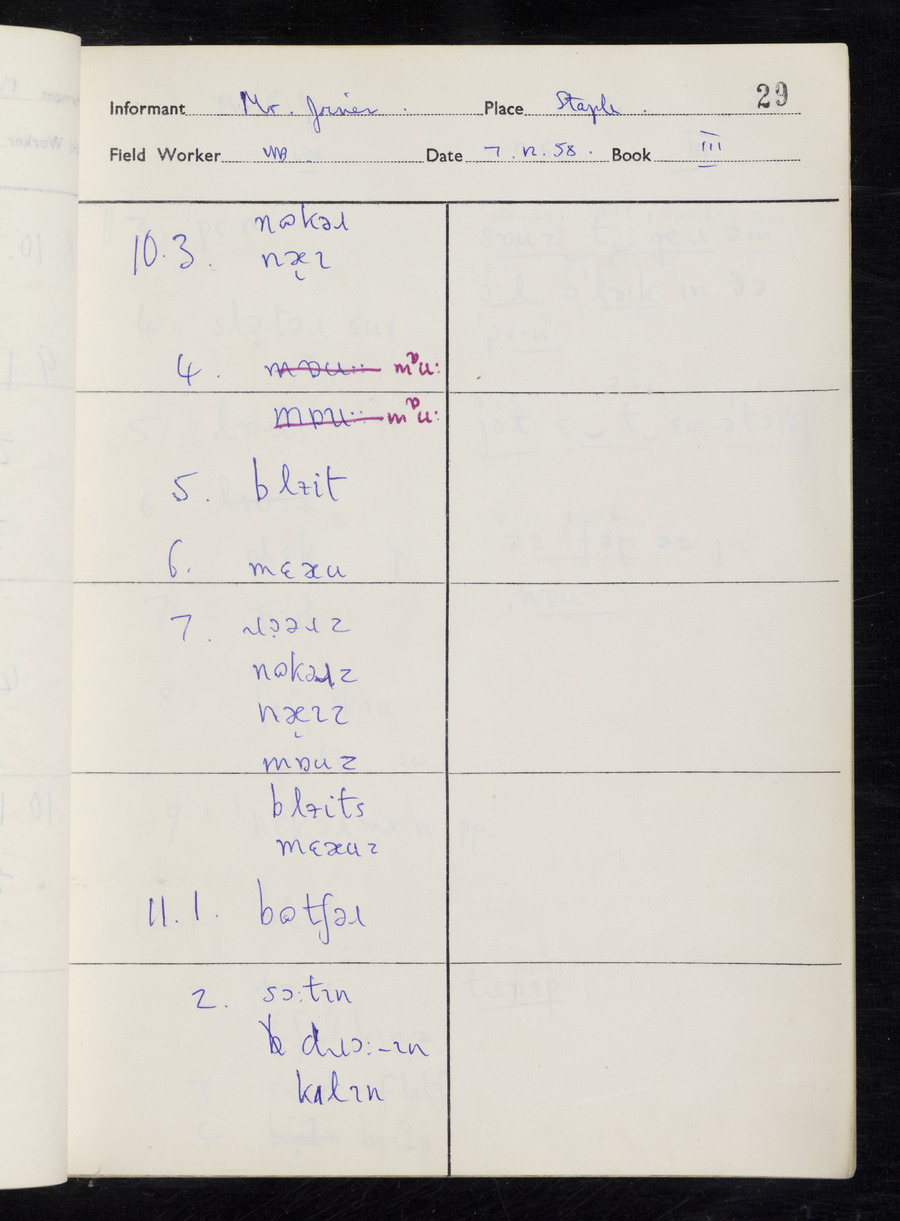 29
Informant Mr. Place Staple.
Field Worker Date 7. 12. 58. Book III
10.3. nɷkəɹ
næ̨ɪ
4. mɒu:: mᶛu:
mɒu:: mᶛu:
5. blɪit
6. mɛæu
7. ɹɔəɹz
nɷkəɹz
næ̨ɪz
mɒuz
blɪits
mɛæuz
11.1. bɷtʃəɹ
2. sɔ:tɪn
dɹɔ:-ɪn
kɑlɪn